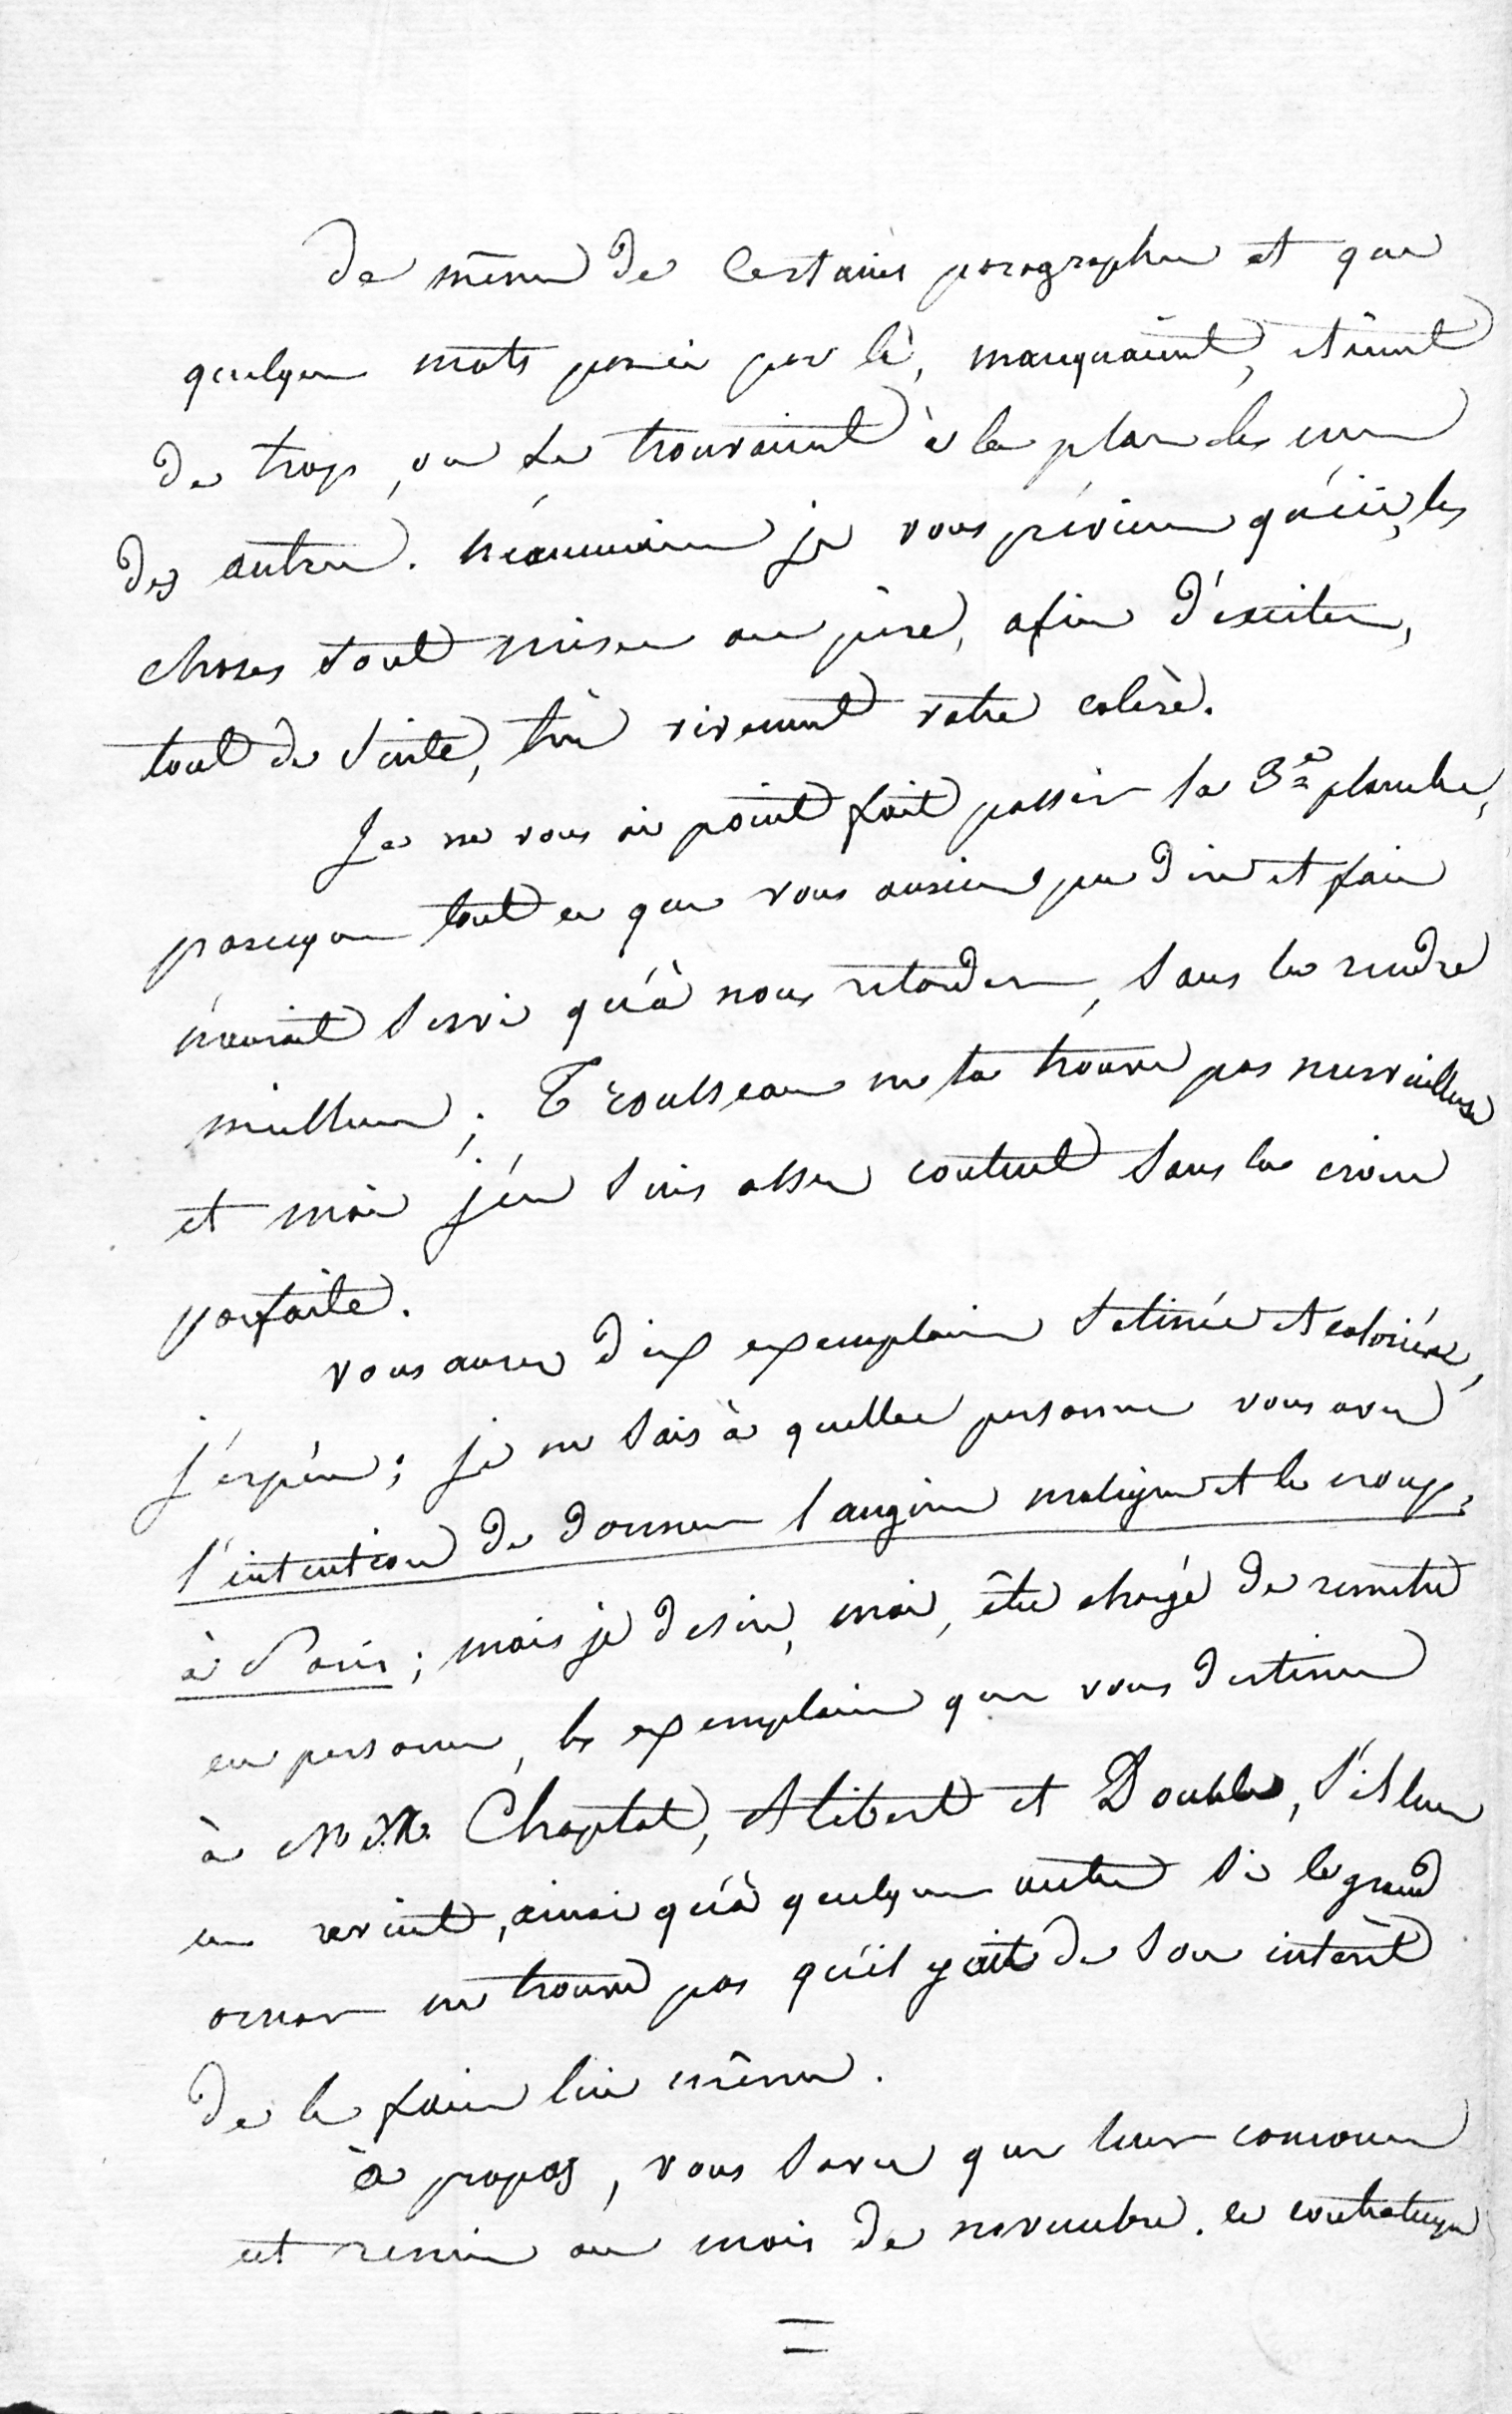 de même de certains paragraphes et que
quelques mots parci par là, manquaient, étaient
de trop, ou se trouvaient à la place les uns
des autres. néanmoins je vous préviens qu'ici, les
choses sont mises au pire, afin d'exciter,
tout de suite, très vivement votre colère.
Je ne vous ai point fait passer la 3e planche,
parceque tout ce que vous auriez pu dire et faire
n'aurait servi qu'à nous retarder, sans la rendre
meilleure; Trousseau ne la trouve pas merveilleuse
et moi j'en suis assez content sans la croire
parfaite.
vous aurez dix exemplaires satinés et coloriés,
j'espère; je ne sais à quelles personnes vous avez
l'intention de donner l'angine maligne et le croup,
à Paris; mais je désire, moi, être chargé de remettre
en personne, les exemplaires que vous destinez
à MM. Chaptal, Alibert et Double, s'il leur
en revient, ainsi qu'à quelques autres si le grand
ne trouve pas qu'il y ait de son intérêt
de le faire lui même.
à propos, vous savez que leur concours
est remis au mois de novembre. ce